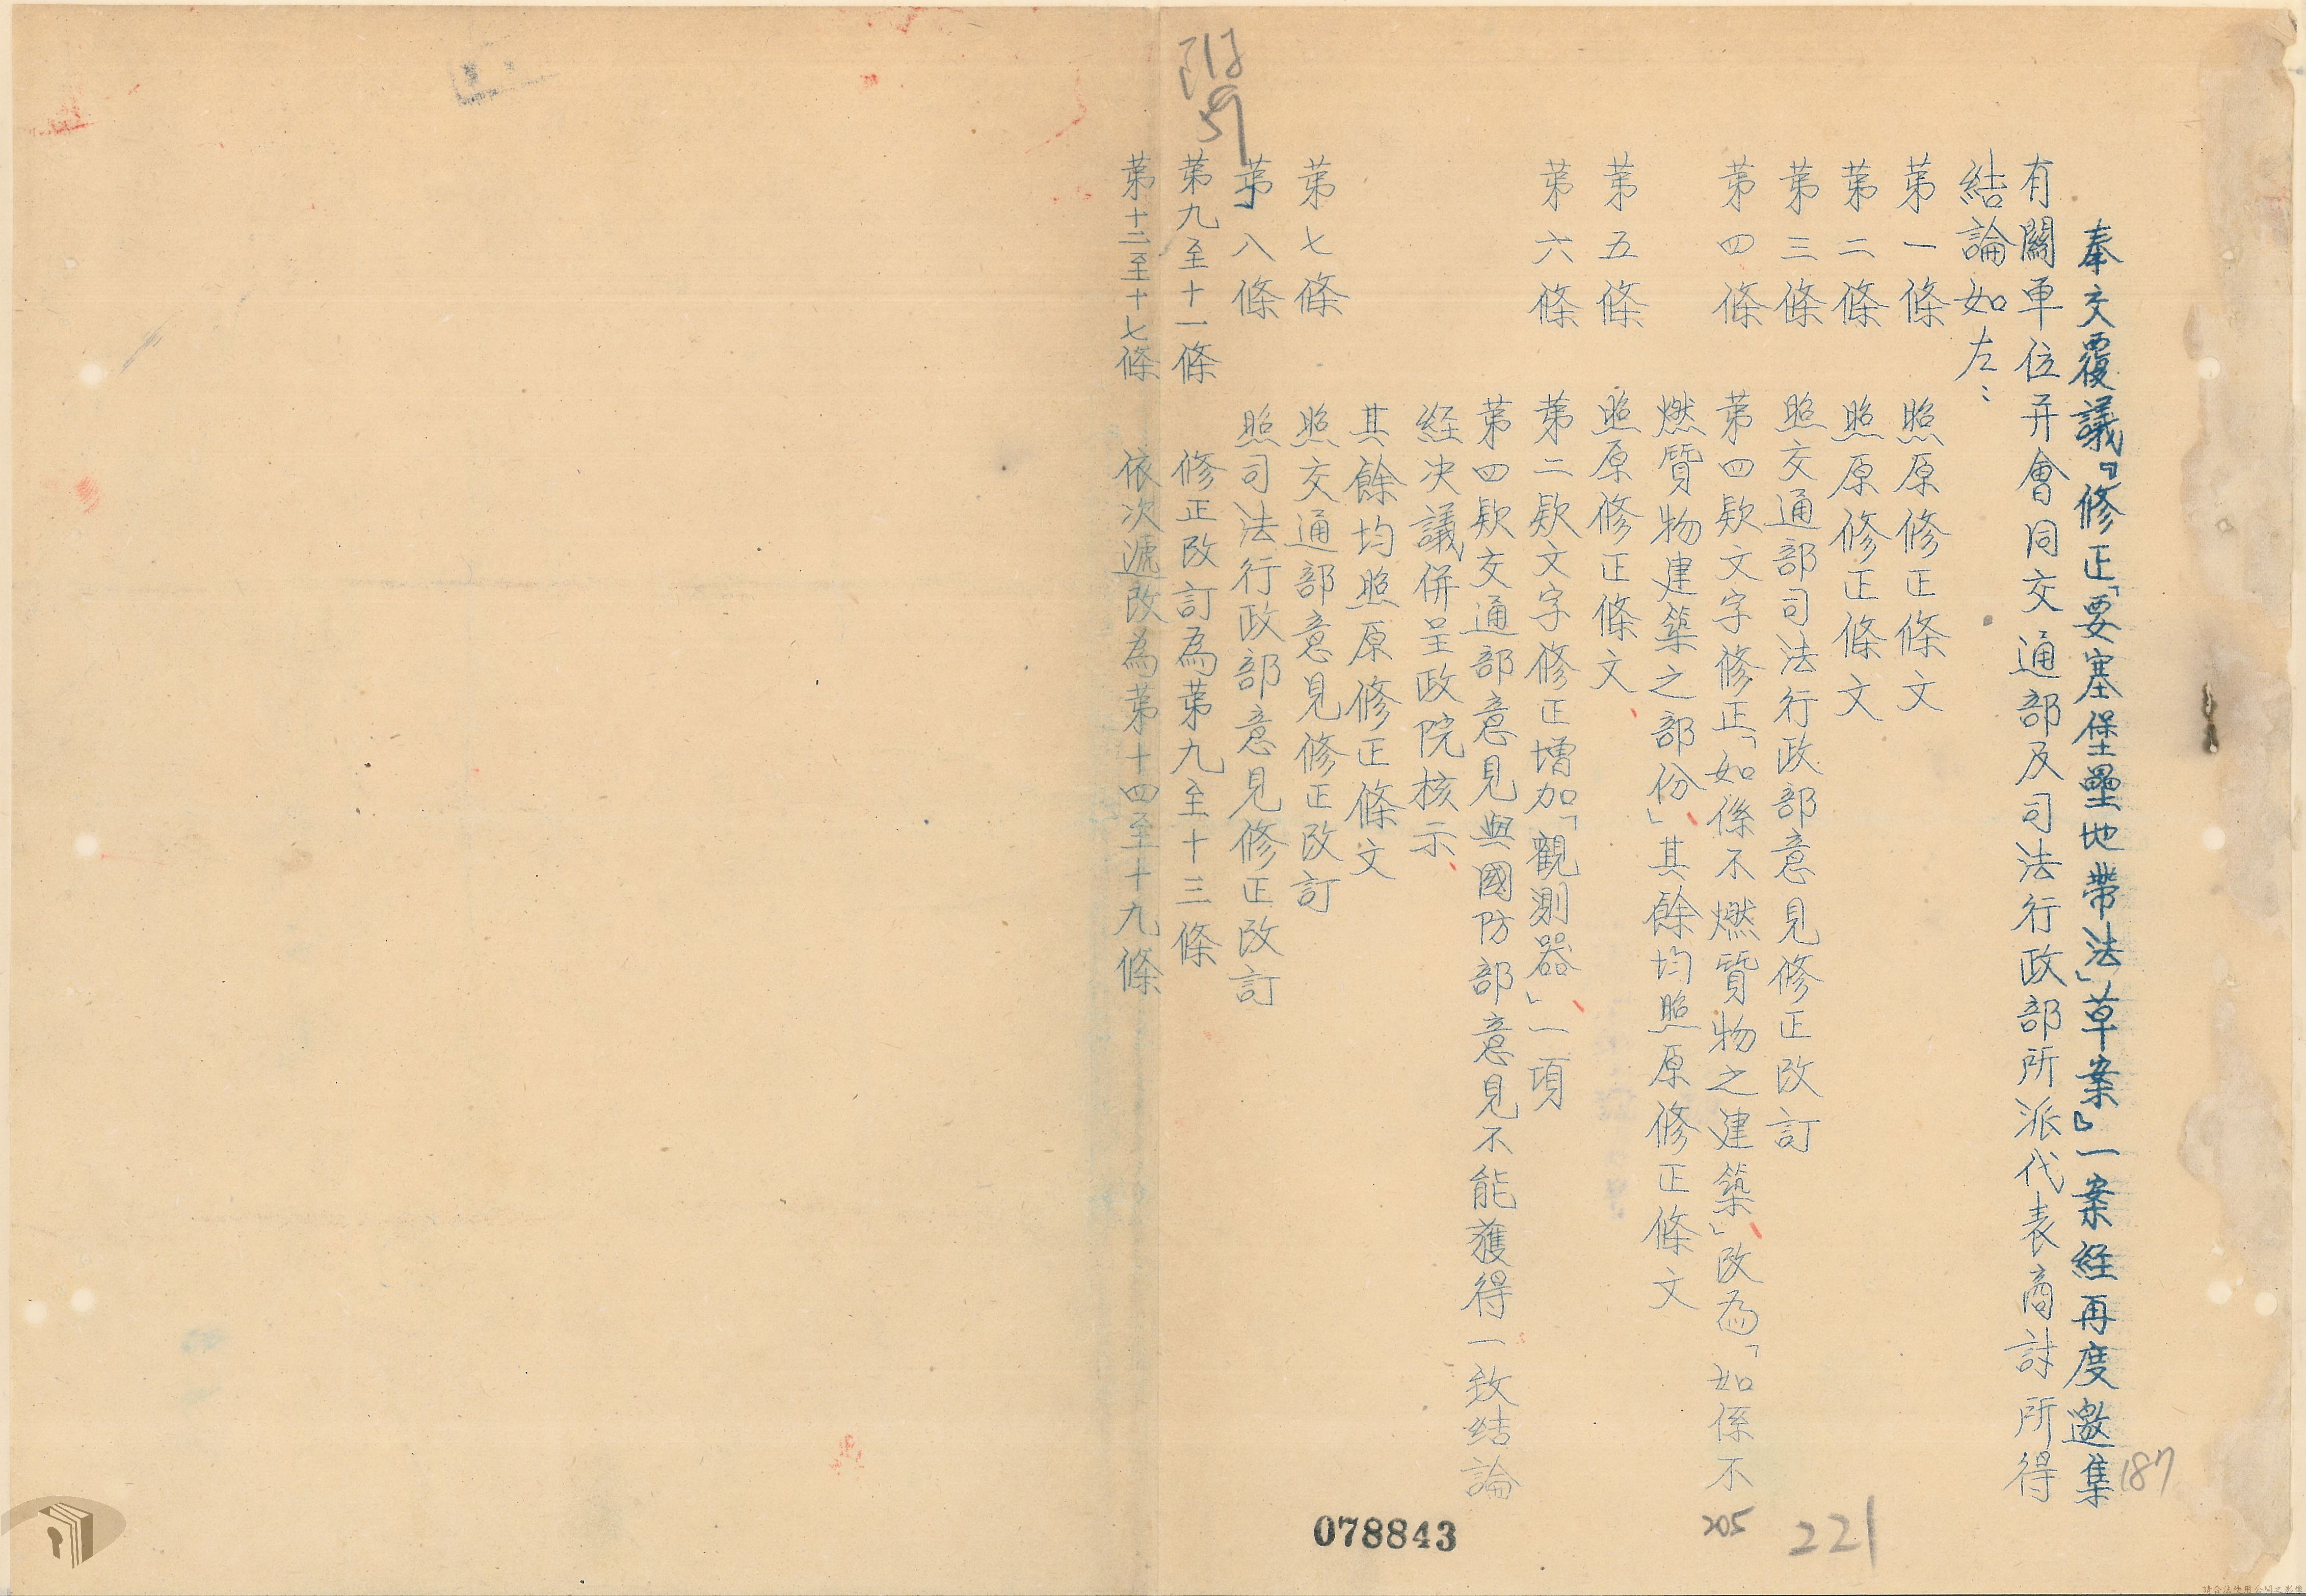 奉交覆議『修正「要塞堡壘地帶法」草案』一案經再度邀集
有關單位开會同交通部及司法行政部所派代表商討所得
結論如左：
第一條　照原修正條文
第二條　照原修正條文
第三條　照交通部司法行政部意見修正改訂
第四條　第四欵文字修正「如係不燃質物之建築」改為「如係不
燃質物建築之部份」其餘均照原修正條文
第五條　照原修正條文
第六條　第二欵文字修正增加「觀測器」一項
第四欵交通部意見與國防部意見不能獲得一致結論
経決議併呈政院核示
其餘均照原修正條文
第七條　照交通部意見修正改訂
第八條　照司法行政部意見修正改訂
第九至十一條　修正改訂為第九至十三條
第十二至十七條　依次遞改為第十四至十九條
59
187
205
221
078843